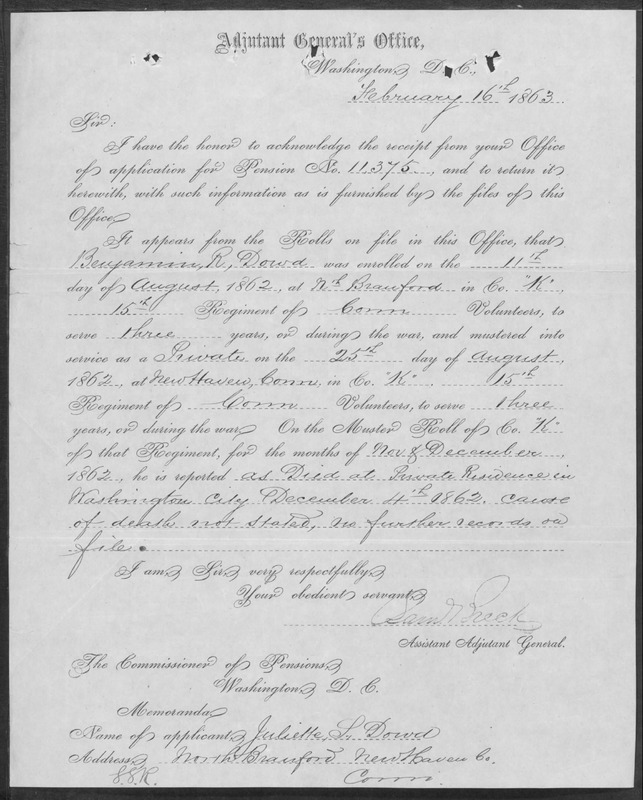 Adjutant General's Office,
Washington, D. C.,
February 16th 1863.
Sir:
I have the honor to acknowledge the receipt from your Office
of application for Pension No. 11,375, and to return it
herewith, with such information as is furnished by the files of this
Office.
It appears from the Rolls on file in this Office, that
Benjamin R. Dowd was enrolled on the 11th
day of August, 1862, at Nth Branford in Co. "K",
15th Regiment of Conn Volunteers, to
serve three years, or during the war, and mustered into
service as a Private on the 25th day of August,
1862, at New Haven, Conn, in Co. "K", 15th
Regiment of Conn Volunteers, to serve three
years, or during the war. On the Muster Roll of Co. "K"
of that Regiment, for the months of Nov & December,
1862, he is reported as Died at Private Residence in
Washington City December 4th 1862. cause
of death not stated, no further records on
file.
I am, Sir, very respectfully,
Your obedient servant,
Saml Breck
Assistant Adjutant General.
The Commissioner of Pensions,
Washington, D. C.
Memoranda,
Name of applicant, Juliette L. Dowd
Address, North Branford New Haven Co.
Conn.